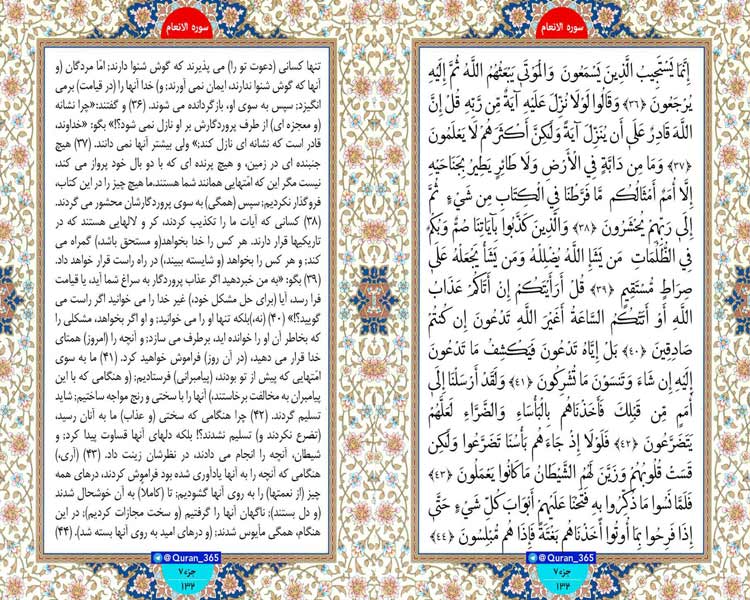 سوره الانعام
إِنَّمَا يَسْتَجِيبُ الَّذِينَ يَسْمَعُونَ وَالْمَوْتَىٰ يَبْعَثُهُمُ اللَّهُ ثُمَّ إِلَيْهِ
يُرْجَعُونَ ﴿۳۶﴾ وَقَالُوا لَوْلَا نُزِّلَ عَلَيْهِ آيَةٌ مِّن رَّبِّهِ قُلْ إِنَّ
اللَّهَ قَادِرٌ عَلَىٰ أَن يُنَزِّلَ آيَةً وَلَٰكِنَّ أَكْثَرَهُمْ لَا يَعْلَمُونَ
﴿۳۷﴾ وَمَا مِن دَابَّةٍ فِي الْأَرْضِ وَلَا طَائِرٍ يَطِيرُ بِجَنَاحَيْهِ
إِلَّا أُمَمٌ أَمْثَالُكُم مَّا فَرَّطْنَا فِي الْكِتَابِ مِن شَيْءٍ ثُمَّ
إِلَىٰ رَبِّهِمْ يُحْشَرُونَ ﴿۳۸﴾ وَالَّذِينَ كَذَّبُوا بِآيَاتِنَا صُمٌّ وَبُكْمٌ
فِي الظُّلُمَاتِ مَن يَشَإِ اللَّهُ يُضْلِلْهُ وَمَن يَشَأْ يَجْعَلْهُ عَلَىٰ
صِرَاطٍ مُّسْتَقِيمٍ ﴿۳۹﴾ قُلْ أَرَأَيْتَكُمْ إِنْ أَتَاكُمْ عَذَابُ
اللَّهِ أَوْ أَتَتْكُمُ السَّاعَةُ أَغَيْرَ اللَّهِ تَدْعُونَ إِن كُنتُمْ
صَادِقِينَ ﴿۴۰﴾ بَلْ إِيَّاهُ تَدْعُونَ فَيَكْشِفُ مَا تَدْعُونَ
إِلَيْهِ إِن شَاءَ وَتَنسَوْنَ مَا تُشْرِكُونَ ﴿۴۱﴾ وَلَقَدْ أَرْسَلْنَا إِلَىٰ
أُمَمٍ مِّن قَبْلِكَ فَأَخَذْنَاهُم بِالْبَأْسَاءِ وَالضَّرَّاءِ لَعَلَّهُمْ
يَتَضَرَّعُونَ ﴿۴۲﴾ فَلَوْلَا إِذْ جَاءَهُم بَأْسُنَا تَضَرَّعُوا وَلَٰكِن
قَسَتْ قُلُوبُهُمْ وَزَيَّنَ لَهُمُ الشَّيْطَانُ مَا كَانُوا يَعْمَلُونَ ﴿۴۳﴾
فَلَمَّا نَسُوا مَا ذُكِّرُوا بِهِ فَتَحْنَا عَلَيْهِمْ أَبْوَابَ كُلِّ شَيْءٍ حَتَّىٰ
إِذَا فَرِحُوا بِمَا أُوتُوا أَخَذْنَاهُم بَغْتَةً فَإِذَا هُم مُّبْلِسُونَ ﴿۴۴﴾
@Quran_365
جزء ۷
۱۳۲
سوره الانعام
تنها کسانی (دعوت تو را) می پذیرند که گوش شنوا دارند؛ امّا مردگان (و
آنها که گوش شنوا ندارند، ایمان نمی آورند؛ و) خدا آنها را (در قیامت) برمی
انگیزد؛ سپس به سوی او، بازگردانده می شوند. (۳۶) و گفتند:«چرا نشانه
(و معجزه ای) از طرف پروردگارش بر او نازل نمی شود؟!» بگو: «خداوند،
قادر است که نشانه ای نازل کند؛» ولی بیشتر آنها نمی دانند. (۳۷) هیچ
جنبنده ای در زمین، و هیچ پرنده ای که با دو بال خود پرواز می کند،
نیست مگر این که امّتهایی همانند شما هستند.ما هیچ چیز را در این کتاب،
فروگذار نکردیم؛ سپس (همگی) به سوی پروردگارشان محشور می گردند.
(۳۸) کسانی که آیات ما را تکذیب کردند، کر و لالهایی هستند که در
تاریکیها قرار دارند. هر کس را خدا بخواهد(و مستحق باشد) گمراه می
کند؛ و هر کس را بخواهد (و شایسته ببیند)، در راه راست قرار خواهد داد.
(۳۹) بگو: «به من خبردهید اگر عذاب پروردگار به سراغ شما آید، یا قیامت
فرا رسد، آیا (برای حل مشکل خود،) غیر خدا را می خوانید اگر راست می
گویید؟!» (۴۰) (نه،)بلکه تنها او را می خوانید؛ و او اگر بخواهد، مشکلی را
که بخاطر آن او را خوانده اید، برطرف می سازد؛ و آنچه را (امروز) همتای
خدا قرار می دهید، (در آن روز) فراموش خواهید کرد. (۴۱) ما به سوی
امّتهایی که پیش از تو بودند، (پیامبرانی) فرستادیم؛ و هنگامی که با این
پیامبران به مخالفت برخاستند،) آنها را با سختی و رنج مواجه ساختیم؛ شاید
تسلیم گردند. (۴۲) چرا هنگامی که سختی (و عذاب) ما به آنان رسید،
(تضرع نکردند و) تسلیم نشدند؟! بلکه دلهای آنها قساوت پیدا کرد؛ و
شیطان، آنچه را انجام می دادند، در نظرشان زینت داد. (۴۳) (آری،)
هنگامی که آنچه را به آنها یادآوری شده بود فراموش کردند، درهای همه
چیز (از نعمتها) را به روی آنها گشودیم؛ تا (کاملا) به آن خوشحال شدند
(و دل بستند)؛ ناگهان آنها را گرفتیم (و سخت مجازات کردیم)؛ در این
هنگام، همگی مأیوس شدند؛ (و درهای امید به روی آنها بسته شد). (۴۴)
@Quran_365
جزء ۷
۱۳۲